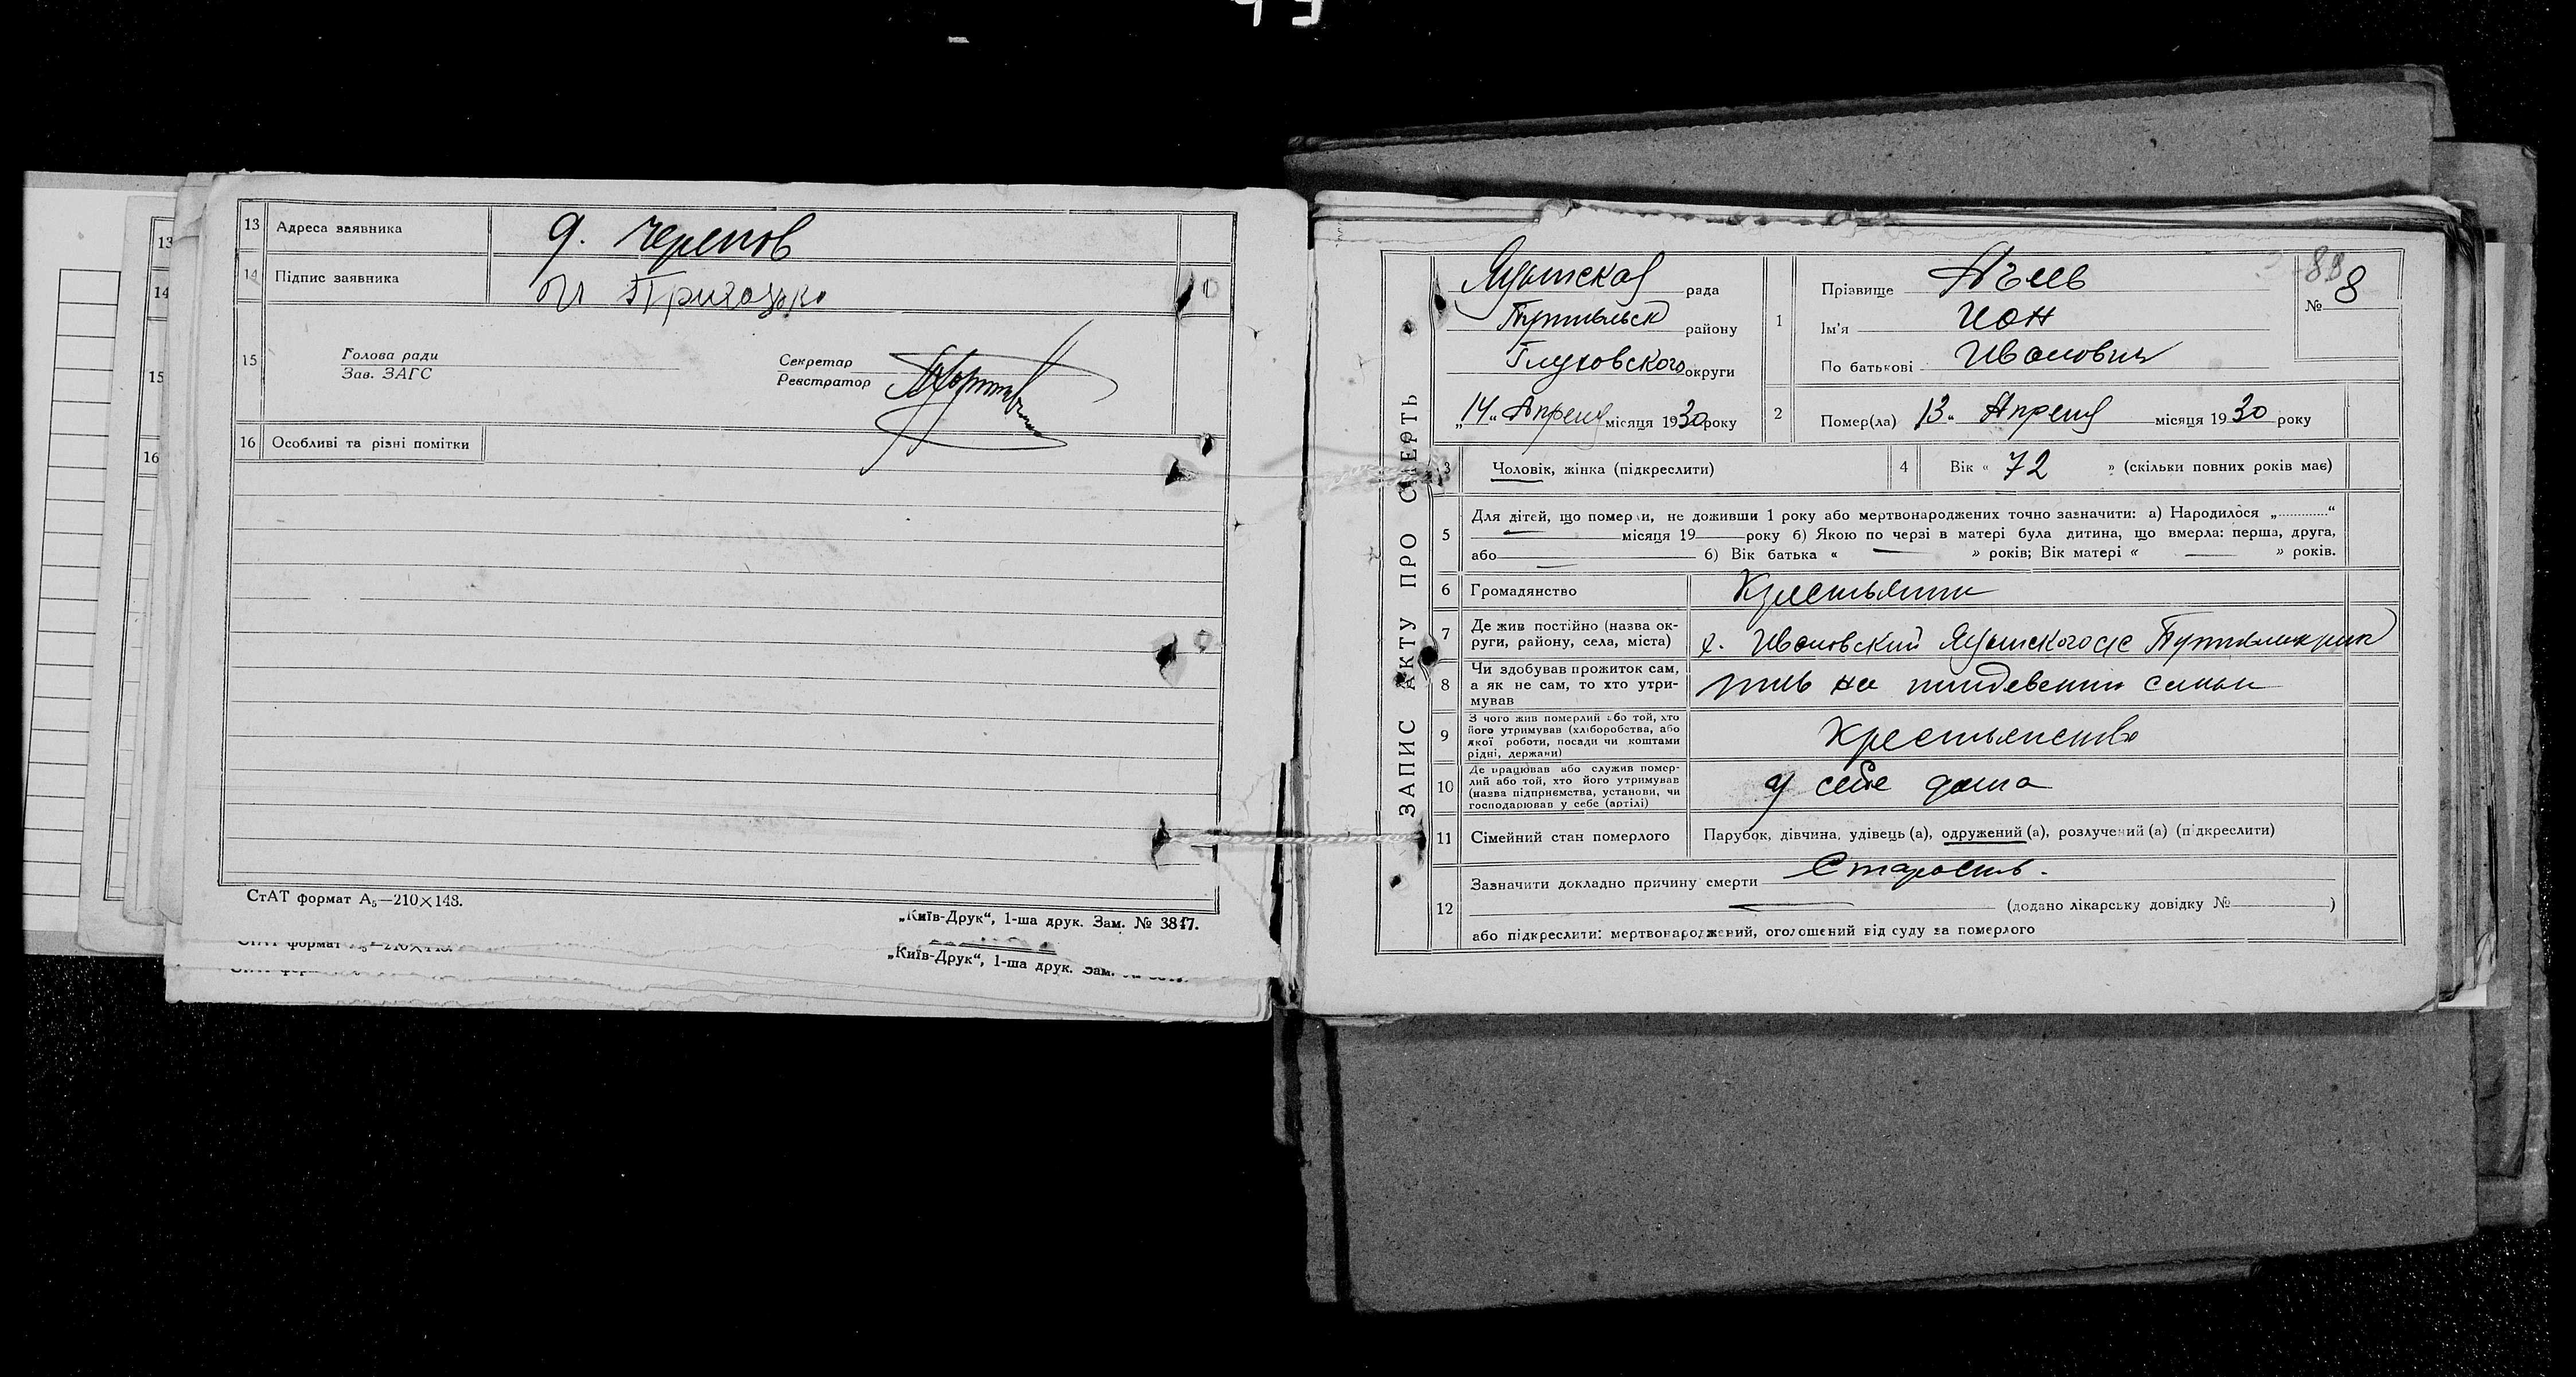 13 Адреса заявника д. Черепов
14 Підпис заявника
15 Голова ради
Зав. ЗАГС
Секретар
Реєстратор
16 Особливі та різні помітки
СтАТ формат А₅—210×148.
„Київ-Друк“, 1-ша друк. Зам. № 3847.
„Київ-Друк“, 1-ша друк. Зам.
13
14
15
16
ЗАПИС АКТУ ПРО СМЕРТЬ
рада
району
Глуховского округи
„14“ Апреля місяця 1930 року
1 Прізвище
Ім'я Ион
По батькові Иванович
№ 8
2 Помер(ла) 13 „ Апреля місяця 1930 року
3 Чоловік, жінка (підкреслити)
4 Вік « 72 » (скільки повних років має)
5 Для дітей, що померли, не доживши 1 року або мертвонароджених точно зазначити: а) Народилося „ “
місяця 19 року б) Якою по черзі в матері була дитина, що вмерла: перша, друга,
або б) Вік батька « » років; Вік матері « » років.
6 Громадянство Крестьянин
7 Де жив постійно (назва ок-
руги, району, села, міста) х. Ивановский
8 Чи здобував прожиток сам,
а як не сам, то хто утри-
мував
9 З чого жив померлий або той, хто
його утримував (хліборобства, або
якої роботи, посади чи коштами
рідні, держави) Крестьянство
10 Де працював або служив помер-
лий або той, хто його утримував
(назва підприємства, установи, чи
господарював у себе (артілі) у себе дома
11 Сімейний стан померлого Парубок, дівчина, удівець (а), одружений (а), розлучений (а) (підкреслити)
12 Зазначити докладно причину смерти Старость.
(додано лікарську довідку № )
або підкреслити: мертвонароджений, оголошений від суду за померлого